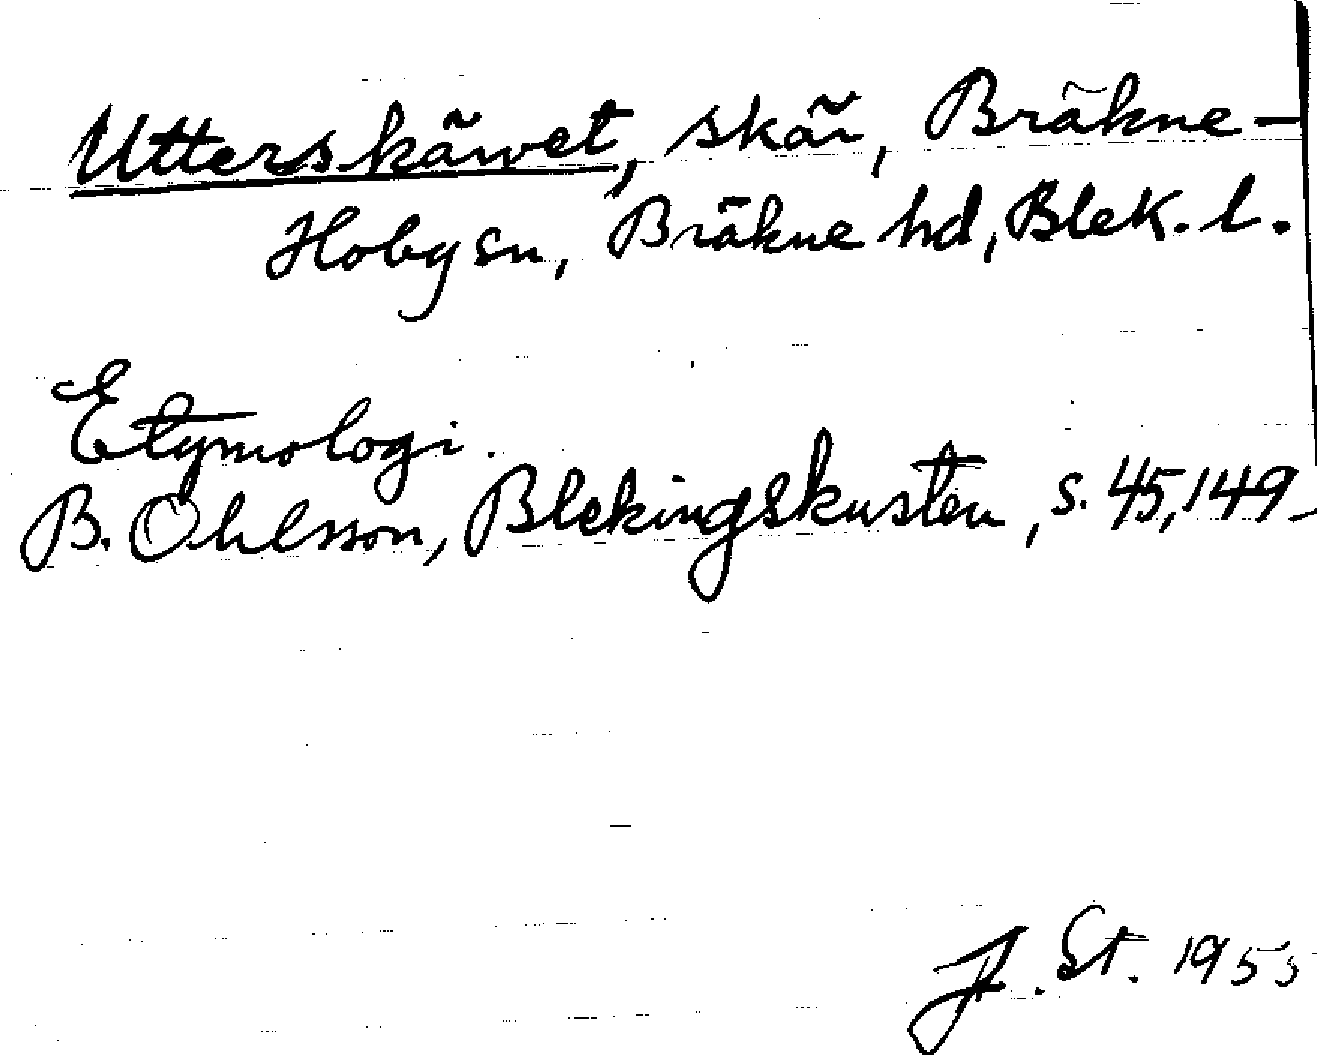 Utterskärvet, skär, Bräkne-
Hoby sn, Bräkne hd, Blek. l.
Etymologi.
B. Ohlsson, Blekingskusten, s. 45, 149
J. St. 1955